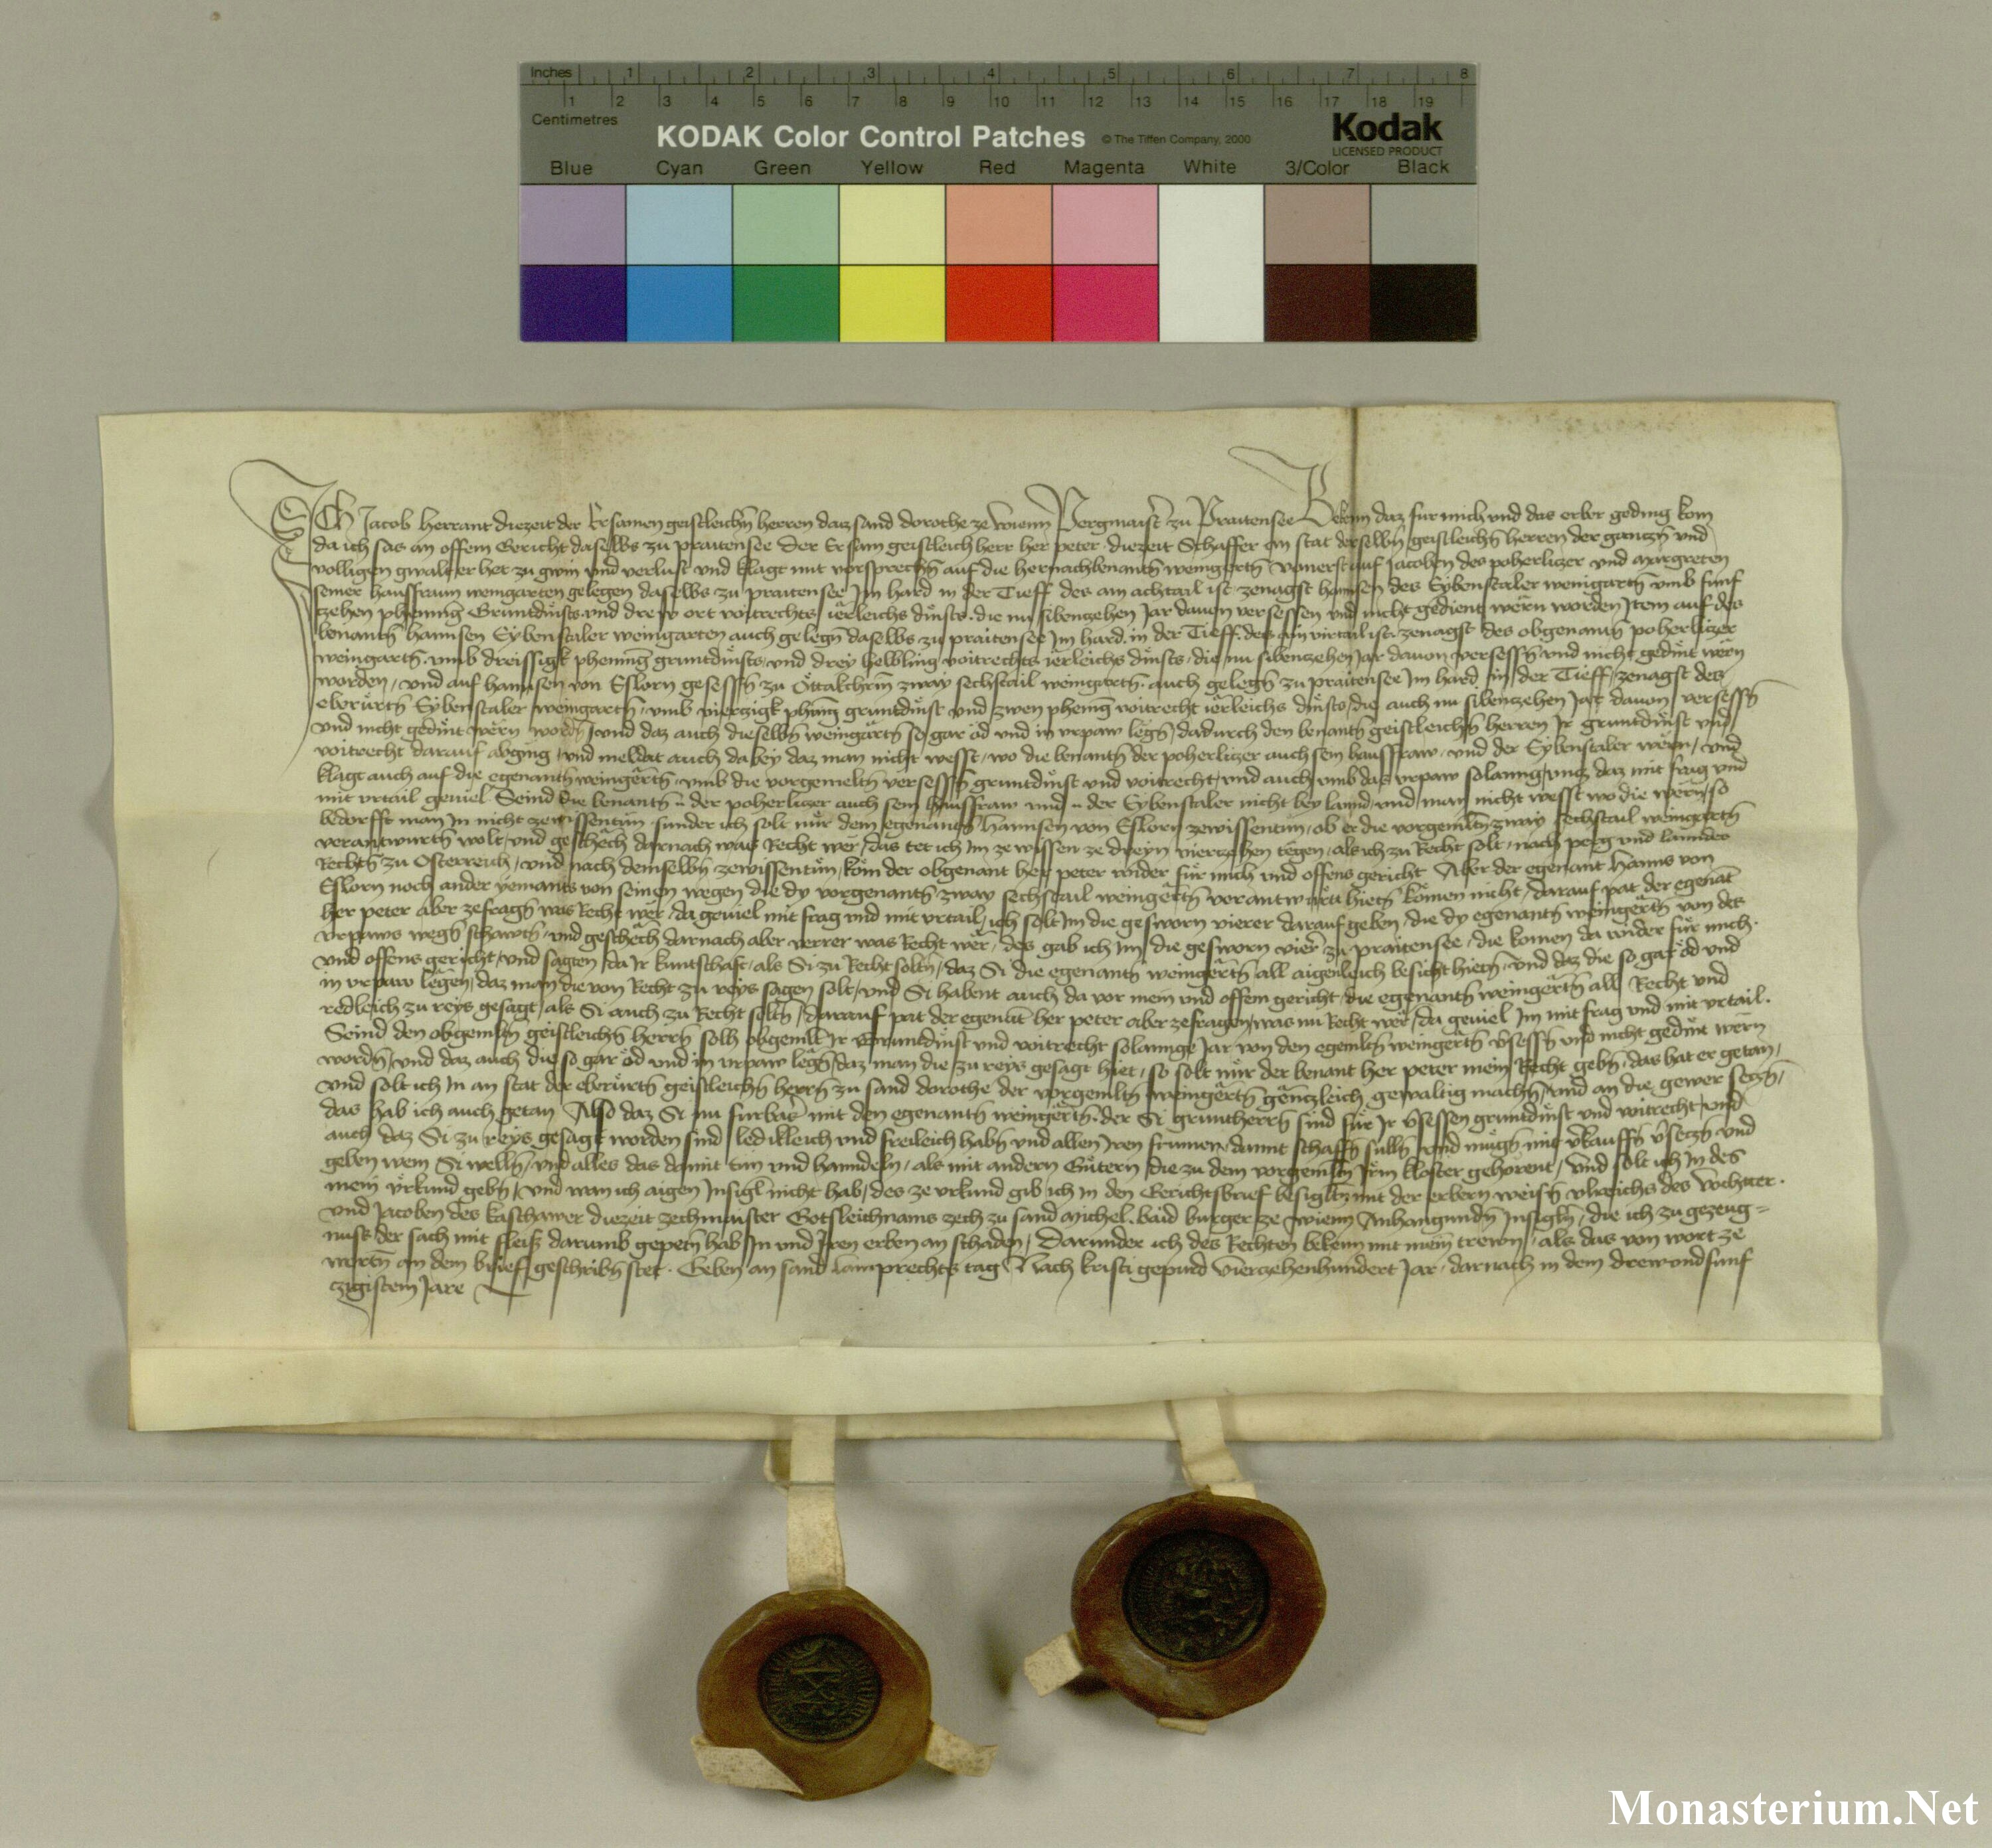 Inches 1 2 3 4 5 6 7 8
1 2 3 4 5 6 7 8 9 10 11 12 13 14 15 16 17 18 19
Centimetres
KODAK Color Control Patches © The Tiffen Company, 2000 Kodak
LICENSED PRODUCT
Blue Cyan Green Yellow Red Magenta White 3/Color Black
ICh Jacob Herrant diezeit der Ersamen geistleichñ herren daz sand dorothe ze wienn Pergmaist̃ zu Praitensee Bekenn daz fur mich und das erber geding kom
da ich sas an offem Gericht daselbs zu praitensee Der Ersam geistleich herr her peter diezeit Schaffer an stat derselbñ geistleichñ herren der ganczñ und
volligen gwalt er het zu gwin und verlust und klagt mit vorsprechñ auf die hernachbenantñ weingertñ von erst auf Jacoben des poherlizer und Margreten
seiner hausfraun weingarten gelegen daselbs zu praitensee Im hard in der Tieff des am achtail ist zenagst hannsen des Eybenstaler weingartñ umb funf
zehen phennig Gruntdinsts und drew ort voitrechts ierleichs dinsts die nu sibenzehen Jar davon versessen und nicht gedient wern worden Item auf des
benantñ hannsen Eybenstaler weingarten auch gelegñ daselbs zu praitensee Im hard in der Tieff des ain virtail ist zenagst des obgenantñ poherlizer
weingartñ umb dreissigk phennig gruntdinsts und drey helbling voitrechts ierleichs dinsts die nu sibenzehen Jar davon versessñ und nicht gedint wern
worden und auf hannsen von Eslorn gesessñ zu Ottakchrin zway sechstail weingartñ auch gelegñ zu praitensee Im hard in der Tieff zenagst des
eberurtñ Eybenstaler weingartñ umb vierzigk phenng gruntdinst und zwen phenig voitrecht ierleichs dinsts die auch nu sibenzehen Jar davon versessñ
und nicht gedint wern wordñ und daz auch dieselbñ weingartñ so gar öd und in urpaw legñ dadurch den benantñ geistleichñ herren Ir gruntdinst und
voitrecht darauf abging und meldat auch dabey daz man nicht wesst wo die benantñ der poherlizer auch sein hausfraw und der Eybenstaler wern und
klagt auch auf die egenantñ weingertñ umb die vorgemeltñ versessñ gruntdinst und voitrecht und auch umb das urpaw solanng uncz daz mit frag und
mit urtail geviel Seind die benantñ der poherlizer auch sein hausfraw und der Eybenstaler nicht bey lannd und man nicht wesst wo die wern so
bedorfft man In nicht zewissentun sunder ich solt nur dem egenantñ Hannsen von Eslorn zewissentun ob er die vorgemltñ zway sechstail weingartñ
verantwurtñ wolt und geschech darnach was Recht wer das tet ich Im ze wissen ze dreyn vierzehen tegen als ich zu Recht solt nach perg und lanndes
Rechtñ zu Osterreich und nach demselbñ zewissentun kom der obgenant her peter wider fur mich und offens gericht Aber der egenant Hanns von
Eslorn noch ander yemants von seinen wegen die dy vorgenantñ zway sechstail weingertñ verantwurtt hietñ komen nicht darauf pat der egenant
her peter aber zefragñ was Recht wer da geviel mit frag und mit urtail ich solt Im die gesworn vierer darauf geben die dy egenantñ weingertñ von des
urpaws wegñ schawtñ und geschech darnach aber verrer was Recht wer des gab ich Im die gesworn vier̃ zu praitensee die komen da wider fur mich
und offens gericht und sagten da Ir kuntschaft als Si zu Recht soltñ daz Si die egenantñ weingertñ all aigenleich besicht hietñ und daz die so gar öd und
in urpaw legen daz man die von Recht zu reys sagen solt und Si habent auch da vor mein und offem gericht die egenantñ weingertñ all Recht und
redleich zu reys gesagt als Si auch zu Recht soltñ darauf pat der egenant her peter aber zefragen was nu Recht wer da geviel Im mit frag und mit urtail
Seind den obgemltñ geistleichñ herrñ solh obgemlt Ir Gruntdinst und voitrecht solannge Jar von den egemltñ weingertñ v̄sessñ und nicht gedint wern
wordñ und daz auch die so gar öd und in urpaw legñ daz man die zu reys gesagt hiet so solt nur der benant her peter mein Recht gebñ das hat er getan
und solt ich In an stat der eberurtñ geistleichñ herrñ zu sand dorothe der vorgemltñ weingertñ genczleich gewaltig machñ und an die gewer seczñ
das hab ich auch getan Also daz Si nu furbas̃ mit den egenantñ weingertñ der Si gruntherrñ sind fur Ir v̄sessen gruntdinst und voitrecht und
auch daz Si zu reys gesagt worden sind ledikleich und freileich habñ und allen Iren frumen damit schaffñ sullñ und mugñ mit v̄kauffñ v̄seczñ und
geben wem Si wellñ und alles das damit tun und hanndeln als mit andern Gutern die zu dem vorgemltñ Irm kloster gehorent Und solt ich In des
mein urkund gebñ und wan ich aigen Insigl nicht hab des ze urkund gib ich In den Gerichtsbrief besigltñ mit der erbern weisñ Ulreichs des
und Jacoben des kaschawer diezeit zechmaister Gotsleichnams zech zu sand Michel baid burger ze wienn Anhangundñ Insigln die ich zu gezeug=
nusk der sach mit fleiss darumb gepetñ hab In und Iren erben an schaden Darunder ich des Rechten bekenn mit mein trewn als das von wort ze
wortñ an dem brief geschribñ stet Geben an sand lamprechts tag Nach kristi gepurd vierzehenhundert Jar darnach in dem drewundfunf
czigistem Jare
Monasterium.Net